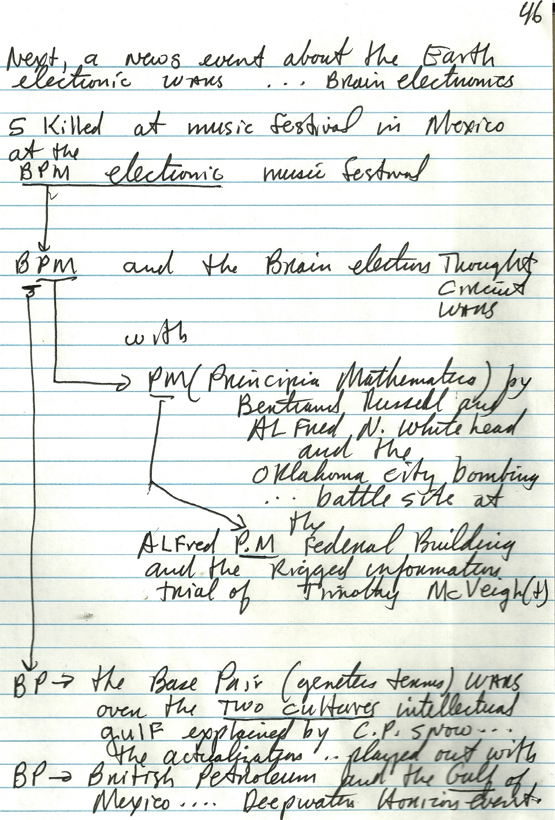 46
Next, a news event about the Earth
electronic wars ... Brain electronics
5 Killed at music festival in Mexico
at the
BPM electronic music festival
BPM and the Brain electrons Thought
Circuit
wars
with
PM (Principia Mathematica) by
Bertrand Russell and
ALFred N. Whitehead
and the
Oklahoma city bombing
... battle site at
the
ALFred P.M Federal Building
and the Rigged information
trial of Timothy McVeigh(t)
BP → the Base Pair (genetics terms) wars
over the Two cultures intellectual
gulf explained by C.P. Snow...
the actualization .. played out with
BP → British Petroleum and the Gulf of
Mexico .... Deepwater Horizon event.